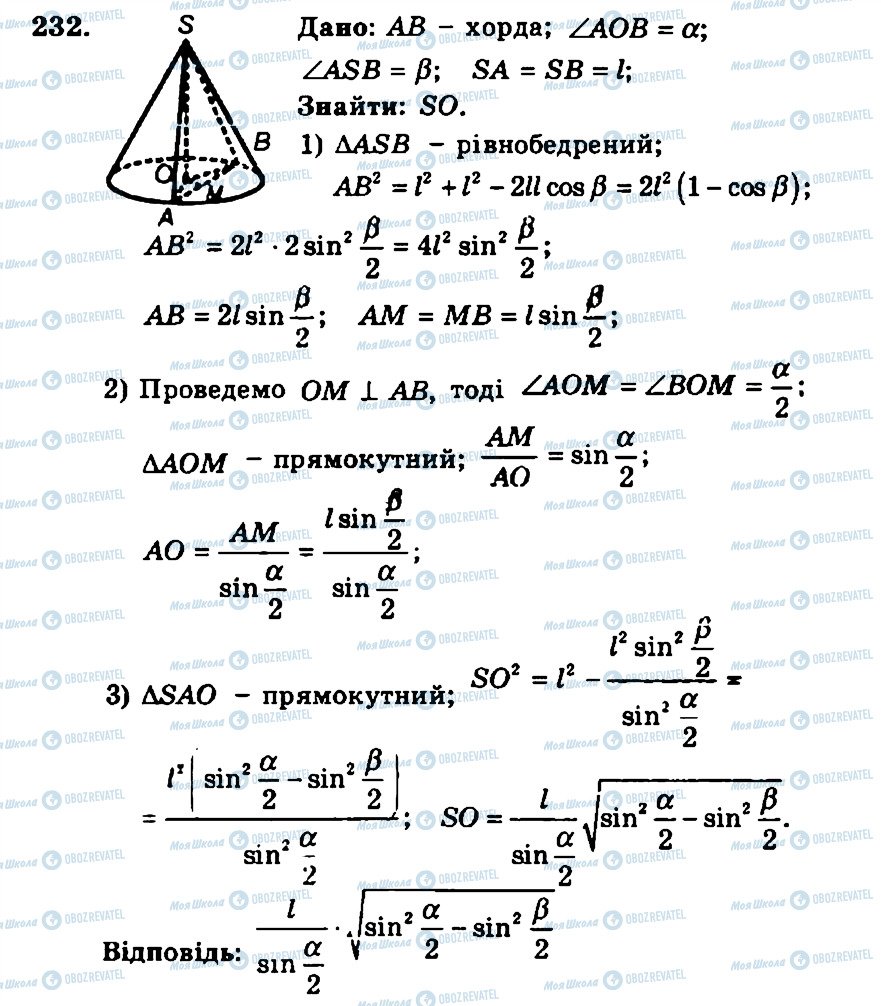 232.
S
O
B
M
A
Дано: AB – хорда; ∠AOB = α;
∠ASB = β; SA = SB = l;
Знайти: SO.
1) ΔASB – рівнобедрений;
AB² = l² + l² – 2ll cos β = 2l² (1 – cos β);
AB² = 2l² · 2 sin² β/2 = 4l² sin² β/2;
AB = 2l sin β/2; AM = MB = l sin β/2;
2) Проведемо OM ⊥ AB, тоді ∠AOM = ∠BOM = α/2;
ΔAOM – прямокутний; AM/AO = sin α/2;
AO = AM / sin α/2 = l sin β/2 / sin α/2;
3) ΔSAO – прямокутний; SO² = l² – l² sin² β/2 / sin² α/2 =
= l² ( sin² α/2 – sin² β/2 ) / sin² α/2; SO = l / sin α/2 √(sin² α/2 – sin² β/2).
Відповідь: l / sin α/2 · √(sin² α/2 – sin² β/2)
Моя Школа OBOZREVATEL